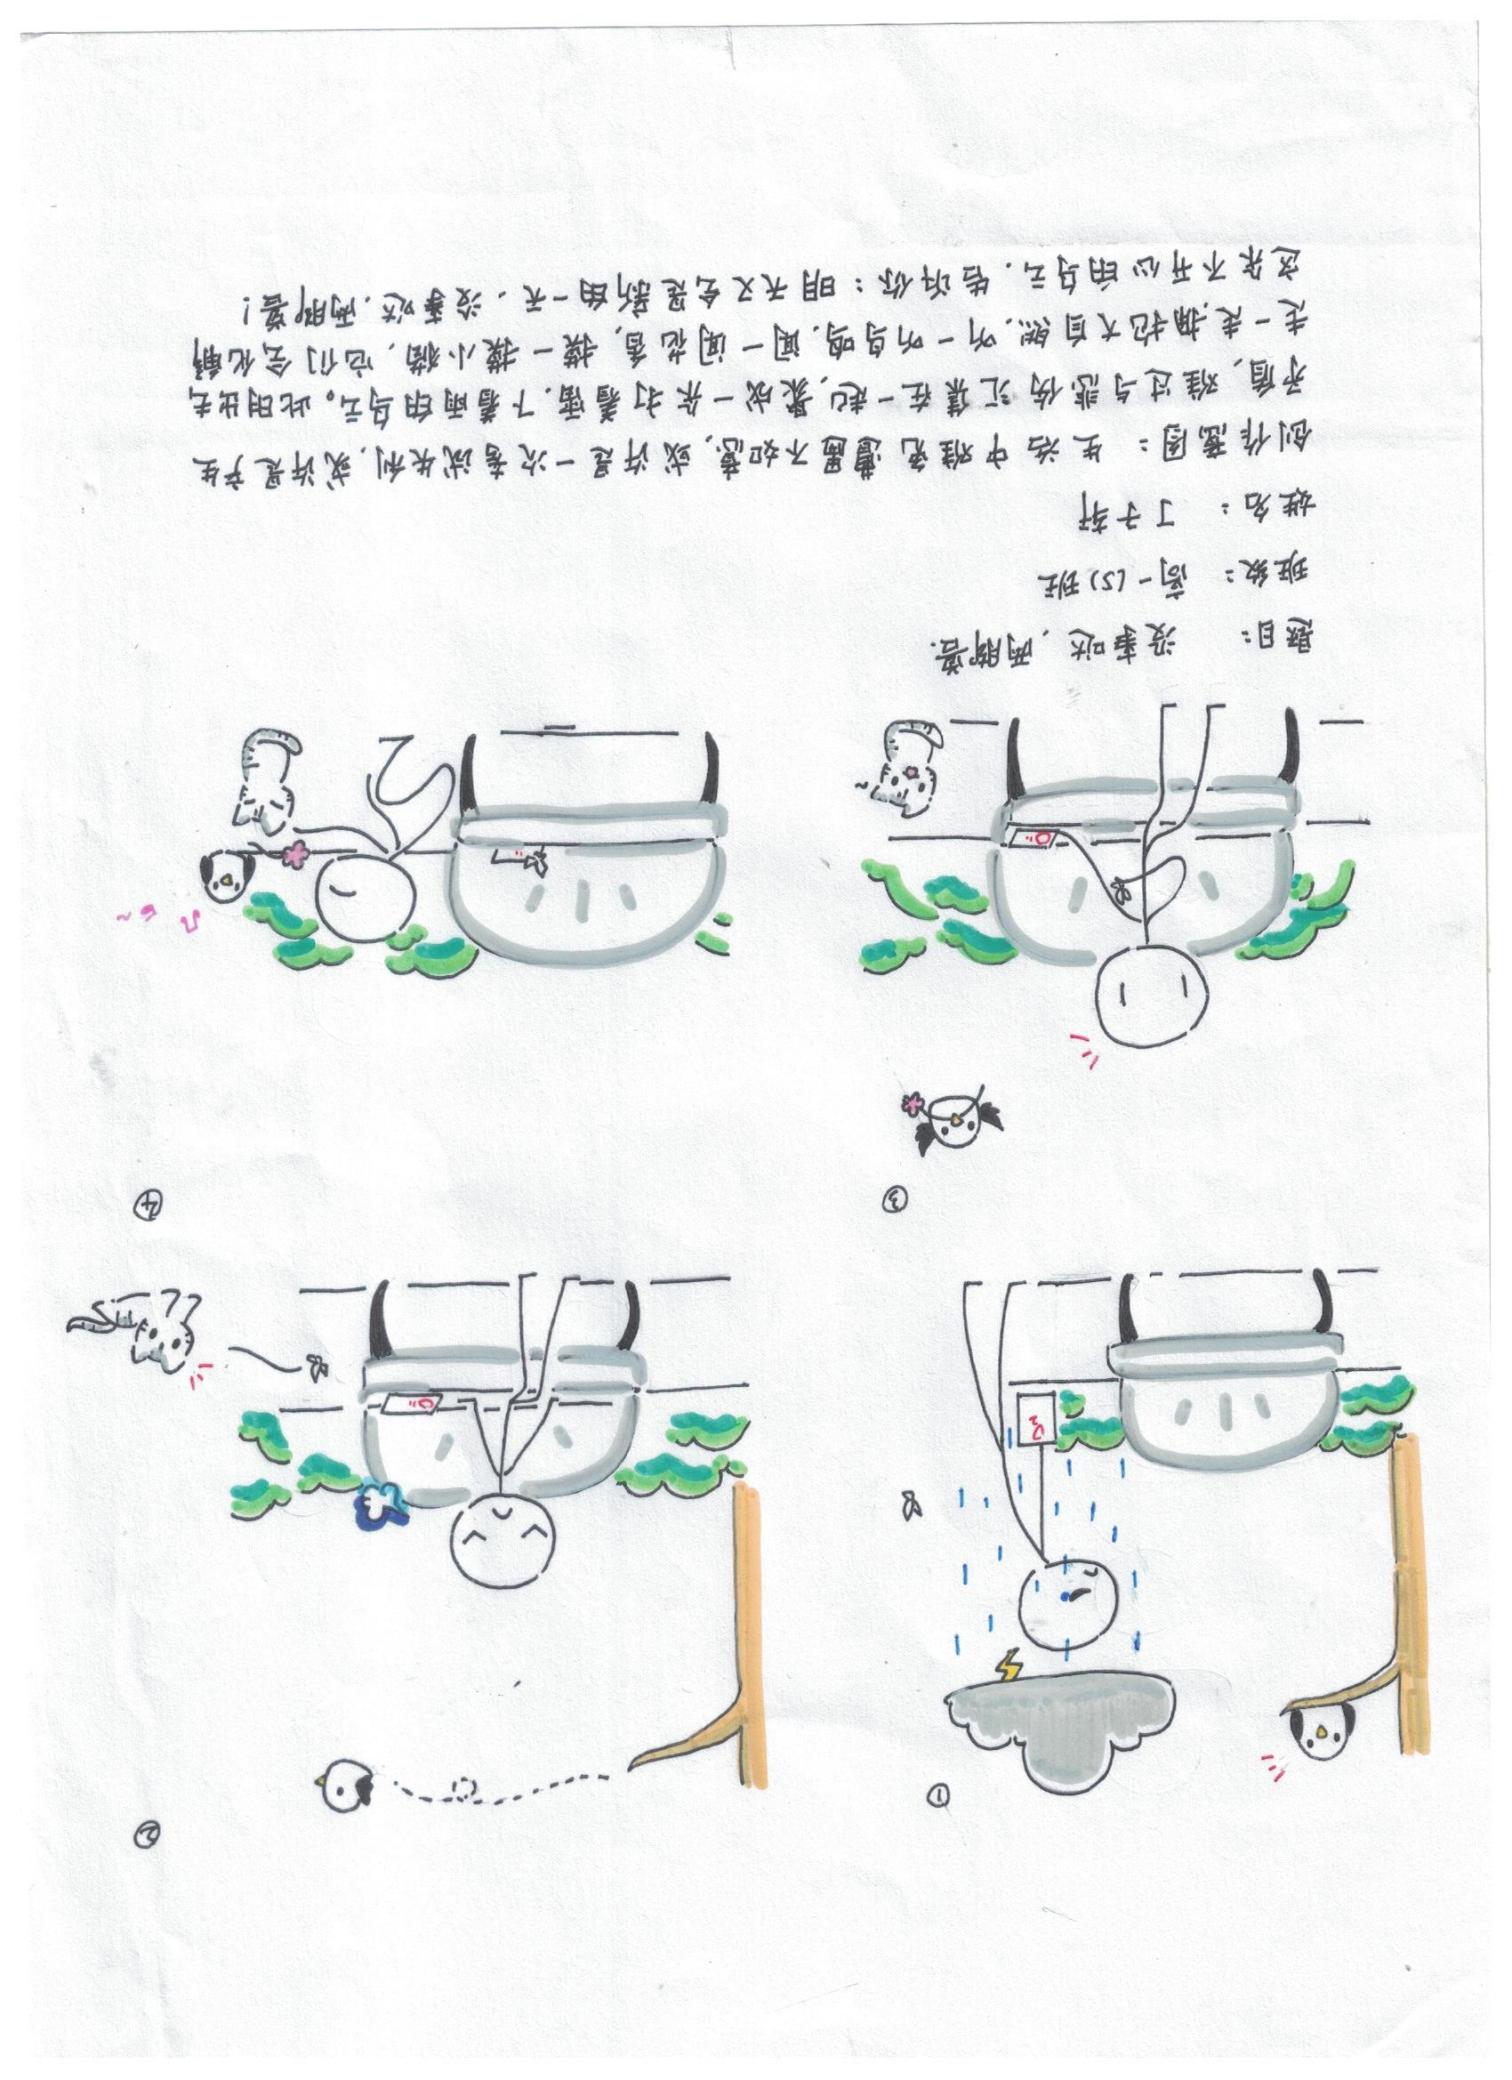 ①
②
③
④
题目: 没事哒,两脚兽.
班级: 高一(5)班
姓名: 丁子轩
创作意图: 生活中难免遭遇不如意,或许是一次考试失利,或许是产生
矛盾,难过与悲伤汇集在一起,聚成一朵打着雷,下着雨的乌云。此时出去
走一走,拥抱大自然,听一听鸟鸣,闻一闻花香,摸一摸小猫,它们会化解
这朵不开心的乌云,告诉你:明天又会是新的一天,没事哒,两脚兽!